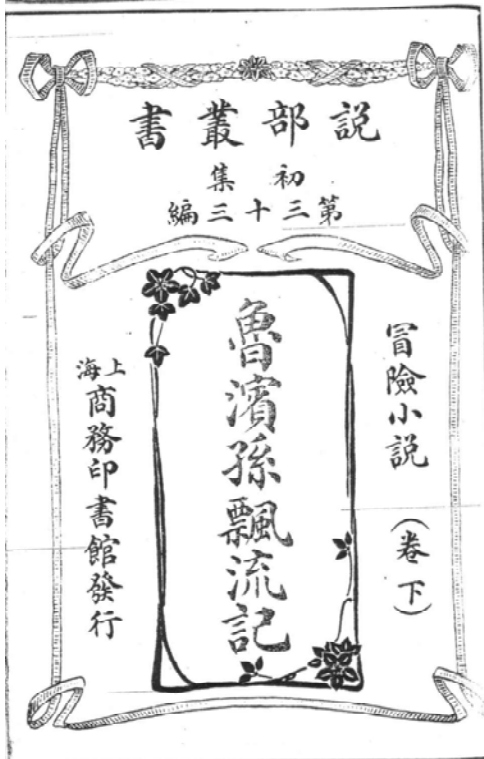 説部叢書
初集
第三十三編
冒險小説 （卷下）
魯濱孫飄流記
上海商務印書館發行